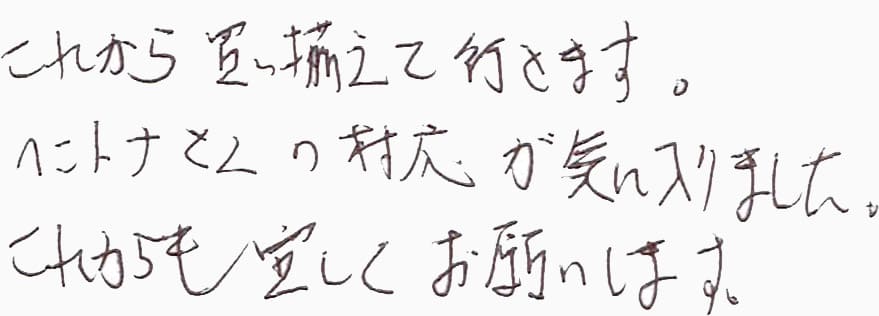 これから買い揃えて行きます。
ヘニトナさんの対応が気に入りました。
これからも宜しくお願いします。